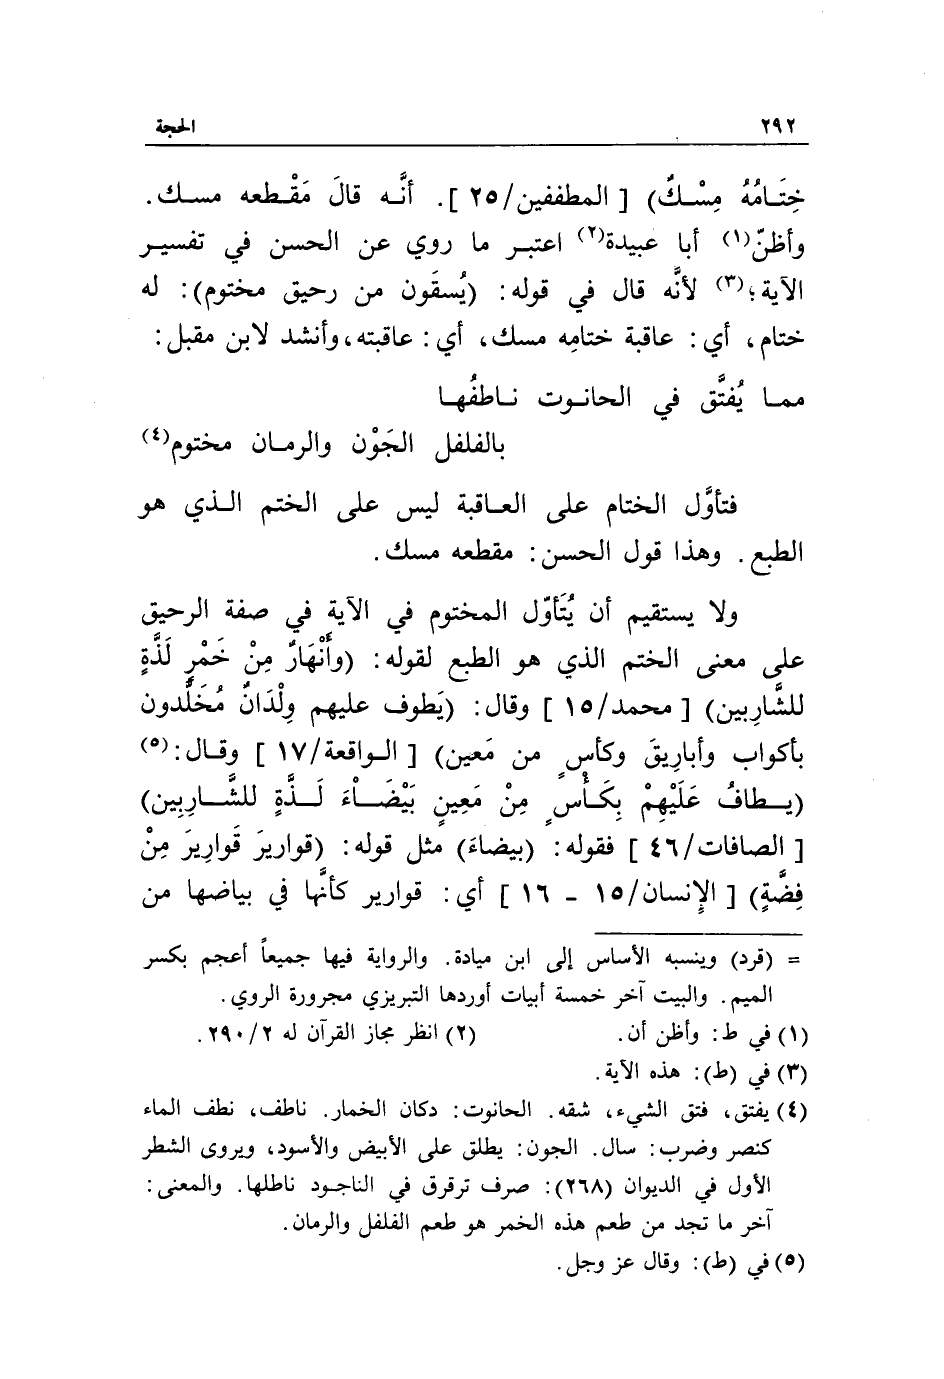 ٢٩٢ الحجة
خِتَامُهُ مِسْكٌ) [ المطففين/٢٥ ]. أنَّه قالَ مَقْطعه مسك.
وأظنّ(١) أبا عبيدة(٢) اعتبر ما روي عن الحسن في تفسير
الآية؛(٣) لأنَّه قال في قوله: (يُسقَون من رحيق مختوم): له
ختام، أي: عاقبة ختامِه مسك، أي: عاقبته، وأنشد لابن مقبل:
مما يُفتَّق في الحانوت ناطفُها
بالفلفل الجَوْن والرمان مختوم(٤)
فتأوَّل الختام على العاقبة ليس على الختم الذي هو
الطبع. وهذا قول الحسن: مقطعه مسك.
ولا يستقيم أن يُتَأوّل المختوم في الآية في صفة الرحيق
على معنى الختم الذي هو الطبع لقوله: (وأَنْهَارٌ مِنْ خَمْرٍ لَذَّةٍ
للشَّارِبين) [ محمد/١٥ ] وقال: (يَطوف عليهم وِلْدَانٌ مُخَلَّدون
بأكواب وأبارِيقَ وكأسٍ من مَعين) [ الواقعة/١٧ ] وقال:(٥)
(يطافُ عَلَيْهِمْ بِكَأْسٍ مِنْ مَعِينٍ بَيْضَاءَ لَذَّةٍ للشَّارِبِين)
[ الصافات/٤٦ ] فقوله: (بيضاءَ) مثل قوله: (قواريرَ قَوارِيرَ مِنْ
فِضَّةٍ) [ الإنسان/١٥ - ١٦ ] أي: قوارير كأنَّها في بياضها من
= (قرد) وينسبه الأساس إلى ابن ميادة. والرواية فيها جميعاً أعجم بكسر
الميم. والبيت آخر خمسة أبيات أوردها التبريزي مجرورة الروي.
(١) في ط: وأظن أن. (٢) انظر مجاز القرآن له ٢/ ٢٩٠.
(٣) في (ط): هذه الآية.
(٤) يفتق، فتق الشيء، شقه. الحانوت: دكان الخمار. ناطف، نطف الماء
كنصر وضرب: سال. الجون: يطلق على الأبيض والأسود، ويروى الشطر
الأول في الديوان (٢٦٨): صرف ترقرق في الناجود ناطلها. والمعنى:
آخر ما تجد من طعم هذه الخمر هو طعم الفلفل والرمان.
(٥) في (ط): وقال عز وجل.